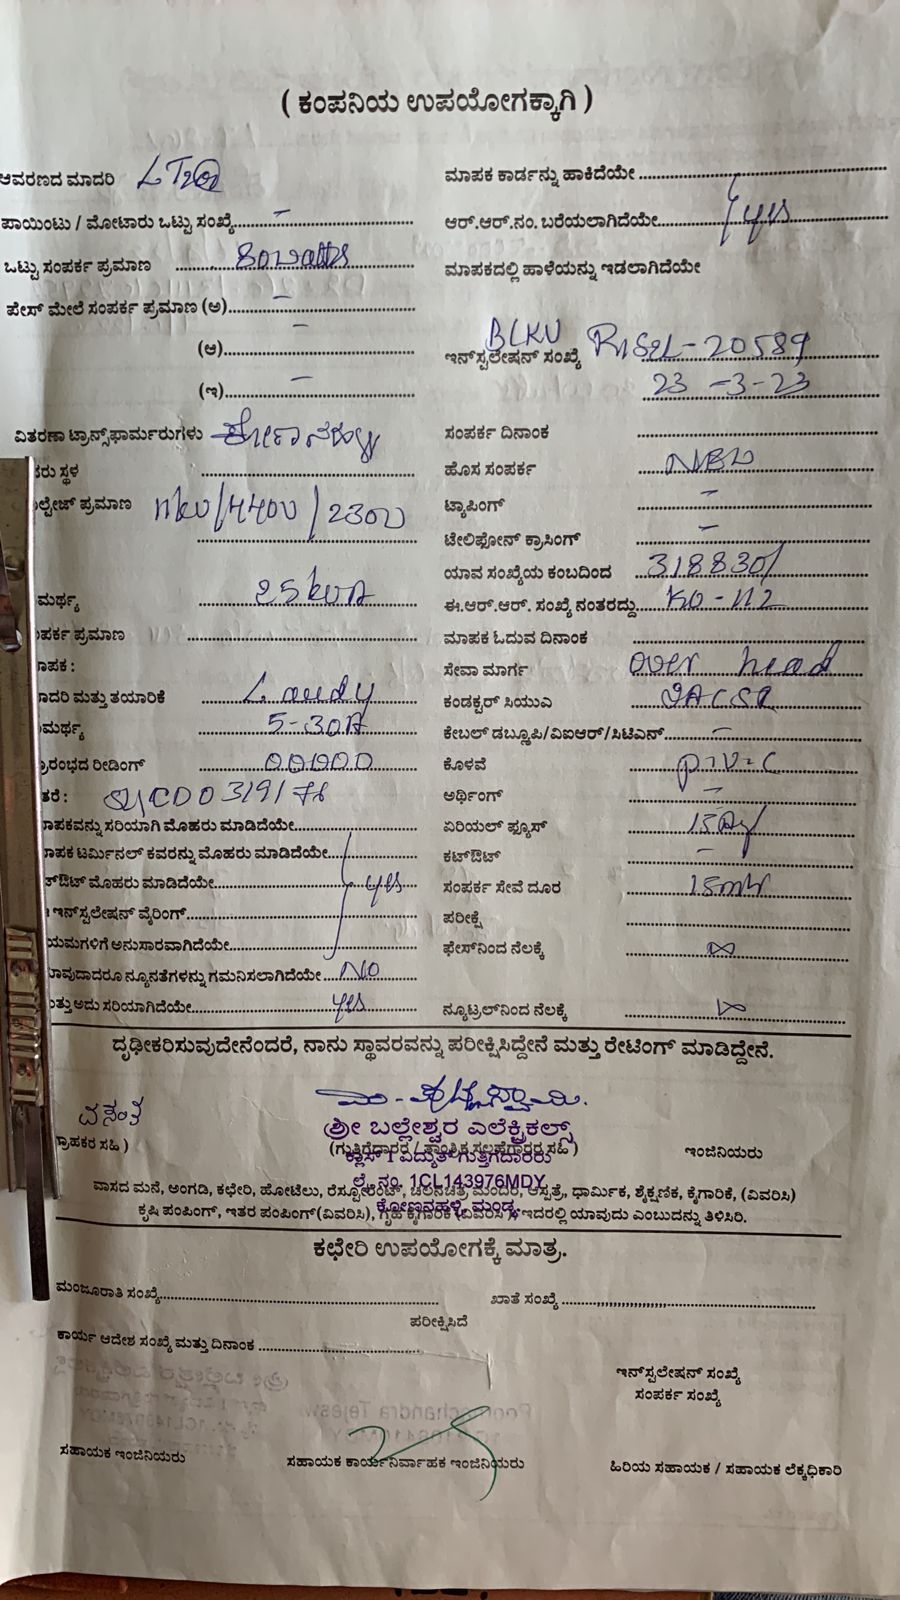 ( ಕಂಪನಿಯ ಉಪಯೋಗಕ್ಕಾಗಿ )
ಆವರಣದ ಮಾದರಿ LT2
ಮಾಪಕ ಕಾರ್ಡನ್ನು ಹಾಕಿದೆಯೇ
ಪಾಯಿಂಟು / ಮೋಟಾರು ಒಟ್ಟು ಸಂಖ್ಯೆ –
ಆರ್.ಆರ್.ನಂ. ಬರೆಯಲಾಗಿದೆಯೇ yes
ಒಟ್ಟು ಸಂಪರ್ಕ ಪ್ರಮಾಣ 80watts
ಮಾಪಕದಲ್ಲಿ ಹಾಳೆಯನ್ನು ಇಡಲಾಗಿದೆಯೇ
ಪೇಸ್ ಮೇಲೆ ಸಂಪರ್ಕ ಪ್ರಮಾಣ (ಅ) –
(ಆ) –
BLKV
ಇನ್‌ಸ್ಟಲೇಷನ್ ಸಂಖ್ಯೆ 20589
(ಇ) –
23-3-23
ವಿತರಣಾ ಟ್ರಾನ್ಸ್‌ಫಾರ್ಮರುಗಳು
ಸಂಪರ್ಕ ದಿನಾಂಕ
ಸ್ಥಳ
ಹೊಸ ಸಂಪರ್ಕ
ಪ್ರಮಾಣ 11kv/440v/230v
ಟ್ಯಾಪಿಂಗ್ –
ಟೆಲಿಫೋನ್ ಕ್ರಾಸಿಂಗ್ –
ಯಾವ ಸಂಖ್ಯೆಯ ಕಂಬದಿಂದ 318830/
25kVA
ಈ.ಆರ್.ಆರ್. ಸಂಖ್ಯೆ ನಂತರದ್ದು KO-112
ಪ್ರಮಾಣ
ಮಾಪಕ ಓದುವ ದಿನಾಂಕ
ಸೇವಾ ಮಾರ್ಗ over head
ಮತ್ತು ತಯಾರಿಕೆ
ಕಂಡಕ್ಟರ್ ಸಿಯುಎ
5-30A
ಕೇಬಲ್ ಡಬ್ಲೂಪಿ/ವಿಐಆರ್/ಸಿಟಿಎನ್ –
ರೀಡಿಂಗ್ 00000
ಕೊಳವೆ p.v.c
ಅರ್ಥಿಂಗ್ –
ಸರಿಯಾಗಿ ಮೊಹರು ಮಾಡಿದೆಯೇ
ಏರಿಯಲ್ ಫ್ಯೂಸ್
ಟರ್ಮಿನಲ್ ಕವರನ್ನು ಮೊಹರು ಮಾಡಿದೆಯೇ
ಕಟ್‌ಔಟ್ –
ಮೊಹರು ಮಾಡಿದೆಯೇ yes
ಸಂಪರ್ಕ ಸೇವೆ ದೂರ 15mtr
ಇನ್‌ಸ್ಟಲೇಷನ್ ವೈರಿಂಗ್
ಪರೀಕ್ಷೆ
ಅನುಸಾರವಾಗಿದೆಯೇ
ಫೇಸ್‌ನಿಂದ ನೆಲಕ್ಕೆ ∞
ನ್ಯೂನತೆಗಳನ್ನು ಗಮನಿಸಲಾಗಿದೆಯೇ NO
ಅದು ಸರಿಯಾಗಿದೆಯೇ yes
ನ್ಯೂಟ್ರಲ್‌ನಿಂದ ನೆಲಕ್ಕೆ
ದೃಢೀಕರಿಸುವುದೇನೆಂದರೆ, ನಾನು ಸ್ಥಾವರವನ್ನು ಪರೀಕ್ಷಿಸಿದ್ದೇನೆ ಮತ್ತು ರೇಟಿಂಗ್ ಮಾಡಿದ್ದೇನೆ.
ವಸಂತ
ಶ್ರೀ ಬಲ್ಲೇಶ್ವರ ಎಲೆಕ್ಟ್ರಿಕಲ್ಸ್
ಸಹಿ )
(ಗುತ್ತಿಗೆದಾರರ / ತಾಂತ್ರಿಕ ಸಲಹೆಗಾರರ ಸಹಿ )
ಇಂಜಿನಿಯರು
ಕ್ಲಾಸ್ 1 ವಿದ್ಯುತ್ ಗುತ್ತಿಗೆದಾರರು
ಲೈ. ನಂ. 1CL143976MDY
ಕೋಣನಹಳ್ಳಿ, ಮಂಡ್ಯ
ವಾಸದ ಮನೆ, ಅಂಗಡಿ, ಕಛೇರಿ, ಹೋಟೆಲು, ರೆಸ್ಟೋರೆಂಟ್, ಚಲನಚಿತ್ರ ಮಂದಿರ, ಆಸ್ಪತ್ರೆ, ಧಾರ್ಮಿಕ, ಶೈಕ್ಷಣಿಕ, ಕೈಗಾರಿಕೆ, (ವಿವರಿಸಿ)
ಕೃಷಿ ಪಂಪಿಂಗ್, ಇತರ ಪಂಪಿಂಗ್(ವಿವರಿಸಿ), ಗೃಹ ಕೈಗಾರಿಕೆ (ವಿವರಿಸಿ) ಇದರಲ್ಲಿ ಯಾವುದು ಎಂಬುದನ್ನು ತಿಳಿಸಿರಿ.
ಕಛೇರಿ ಉಪಯೋಗಕ್ಕೆ ಮಾತ್ರ.
ಮಂಜೂರಾತಿ ಸಂಖ್ಯೆ
ಖಾತೆ ಸಂಖ್ಯೆ
ಪರೀಕ್ಷಿಸಿದೆ
ಕಾರ್ಯ ಆದೇಶ ಸಂಖ್ಯೆ ಮತ್ತು ದಿನಾಂಕ
ಇನ್‌ಸ್ಟಲೇಷನ್ ಸಂಖ್ಯೆ
ಸಂಪರ್ಕ ಸಂಖ್ಯೆ
ಸಹಾಯಕ ಇಂಜಿನಿಯರು
ಸಹಾಯಕ ಕಾರ್ಯನಿರ್ವಾಹಕ ಇಂಜಿನಿಯರು
ಹಿರಿಯ ಸಹಾಯಕ / ಸಹಾಯಕ ಲೆಕ್ಕಧಿಕಾರಿ